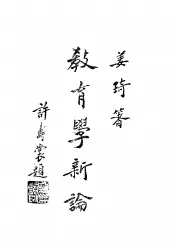 姜琦著
教育學新論
許壽裳題